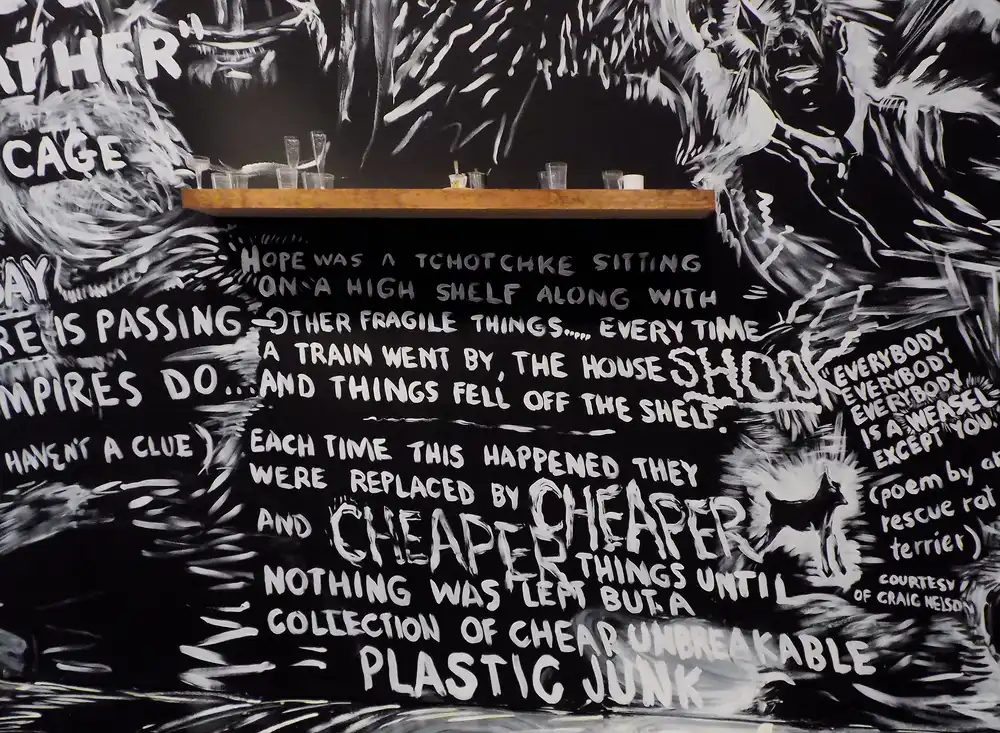 ATHER"
CAGE
AY
RE IS PASSING
MPIRES DO...
HAVEN'T A CLUE)
HOPE WAS A TCHOTCHKE SITTING
ON A HIGH SHELF ALONG WITH
OTHER FRAGILE THINGS..... EVERY TIME
A TRAIN WENT BY, THE HOUSE SHOOK
AND THINGS FELL OFF THE SHELF.
EACH TIME THIS HAPPENED THEY
WERE REPLACED BY CHEAPER
AND CHEAPER THINGS UNTIL
NOTHING WAS LEFT BUT A
COLLECTION OF CHEAP UNBREAKABLE
PLASTIC JUNK
"EVERYBODY
EVERYBODY
EVERYBODY
IS A WEASEL
EXCEPT YOU"
(poem by a
rescue rat
terrier)
COURTESY
OF CRAIG NELSON